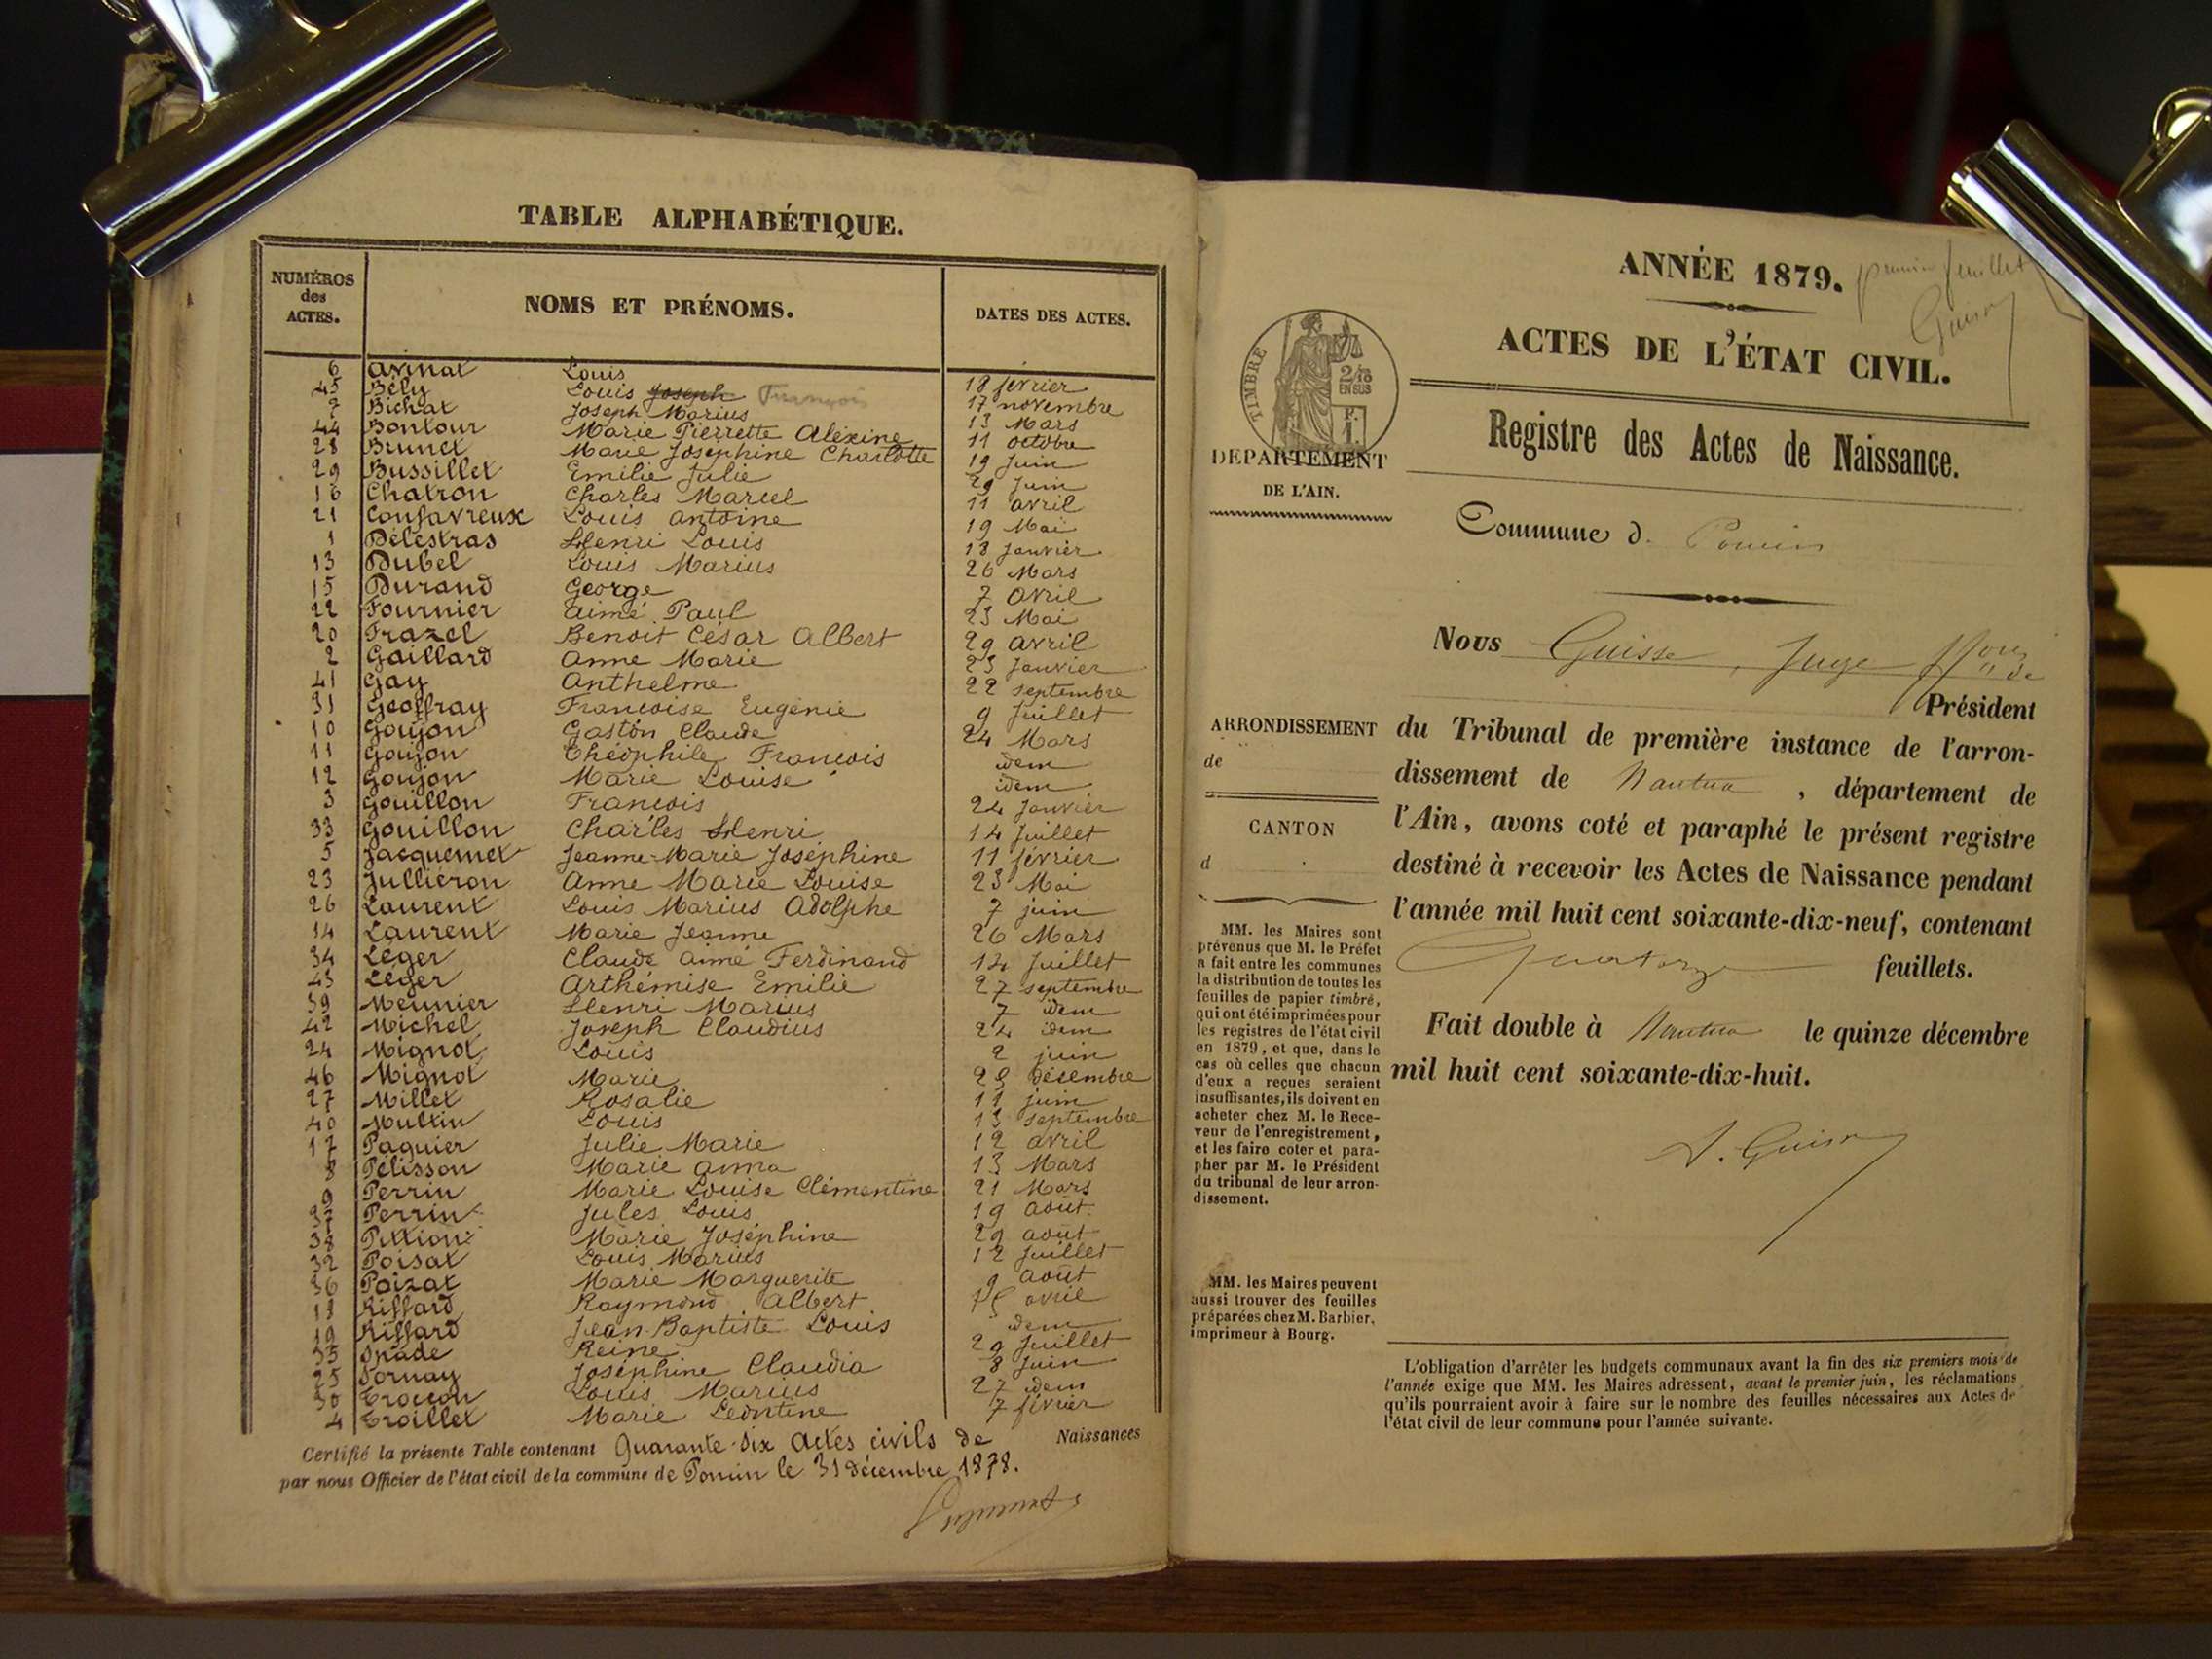 TABLE ALPHABÉTIQUE.
NUMÉROS des ACTES. NOMS ET PRÉNOMS. DATES DES ACTES.
6 Avinal Louis 18 février
45 Bély Louis Joseph François 17 novembre
7 Bichat Joseph Marius 13 Mars
44 Bontour Marie Pierrette Aléxine 11 octobre
28 Brunet Marie Joséphine Charlotte 19 Juin
29 Bussillet Emilie Julie 29 Juin
16 Chatron Charles Marcel 11 avril
21 Confavreux Louis Antoine 19 Mai
1 Délestras Henri Louis 18 Janvier
13 Dubel Louis Marius 26 Mars
15 Durand George 7 avril
22 Fournier Aimé Paul 23 Mai
20 Frazel Benoit César Albert 29 avril
2 Gaillard Anne Marie 23 Janvier
41 Gay Anthelme 22 septembre
31 Geoffray Francoise Eugénie 9 Juillet
10 Goujon Gaston Claude 24 Mars
11 Goujon Théophile Francois idem
12 Goujon Marie Louise idem
3 Gouillon Francois 24 Janvier
33 Gouillon Charles Henri 14 Juillet
5 Jacquemet Jeanne-Marie Joséphine 11 février
23 Julliéron Anne Marie Louise 23 Mai
26 Laurent Louis Marius Adolphe 7 juin
14 Laurent Marie Jeanne 26 Mars
34 Léger Claude Aimé Ferdinand 14 Juillet
43 Léger Arthémise Emilie 27 septembre
39 Meunier Henri Marius 7 idem
42 Michel Joseph Claudius 24 idem
24 Mignot Louis 2 juin
46 Mignot Marie 28 décembre
27 Millet Rosalie 11 juin
40 Multin Louis 13 septembre
17 Paquier Julie Marie 12 avril
8 Pélisson Marie Anna 13 Mars
9 Perrin Marie Louise Clémentine 21 Mars
37 Perrin Jules Louis 19 août
38 Pittion Marie Joséphine 29 août
32 Poisat Louis Marius 12 Juillet
36 Poizat Marie Marguerite 9 août
18 Riffard Raymond Albert 15 avril
19 Riffard Jean-Baptiste Louis idem
35 Spade Reine 29 Juillet
25 Tornay Joséphine Claudia 8 Juin
30 Trocçon Louis Marius 27 idem
4 Troillet Marie Léontine 7 février
Certifié la présente Table contenant Quarante-Six Actes civils de Naissances
par nous Officier de l'état civil de la commune de Poncin le 31 décembre 1878.
ANNÉE 1879.
premier feuillet
Guisse
ACTES DE L'ÉTAT CIVIL.
TIMBRE
2/10 EN SUS
F. 1.
Registre des Actes de Naissance.
DEPARTEMENT
DE L'AIN.
Commune d. Poncin
Nous Guisse, Juge
Président
ARRONDISSEMENT
de
CANTON
d
du Tribunal de première instance de l'arron-
dissement de Nantua, département de
l'Ain, avons coté et paraphé le présent registre
destiné à recevoir les Actes de Naissance pendant
l'année mil huit cent soixante-dix-neuf, contenant
Quatorze feuillets.
Fait double à Nantua le quinze décembre
mil huit cent soixante-dix-huit.
A. Guisse
MM. les Maires sont
prévenus que M. le Préfet
a fait entre les communes
la distribution de toutes les
feuilles de papier timbré,
qui ont été imprimées pour
les registres de l'état civil
en 1879, et que, dans le
cas où celles que chacun
d'eux a reçues seraient
insuffisantes, ils doivent en
acheter chez M. le Rece-
veur de l'enregistrement,
et les faire coter et para-
pher par M. le Président
du tribunal de leur arron-
dissement.
MM. les Maires peuvent
aussi trouver des feuilles
préparées chez M. Barbier,
imprimeur à Bourg.
L'obligation d'arrêter les budgets communaux avant la fin des six premiers mois de
l'année exige que MM. les Maires adressent, avant le premier juin, les réclamations
qu'ils pourraient avoir à faire sur le nombre des feuilles nécessaires aux Actes de
l'état civil de leur commune pour l'année suivante.